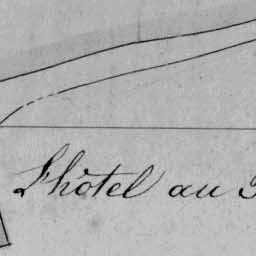 L'hôtel au